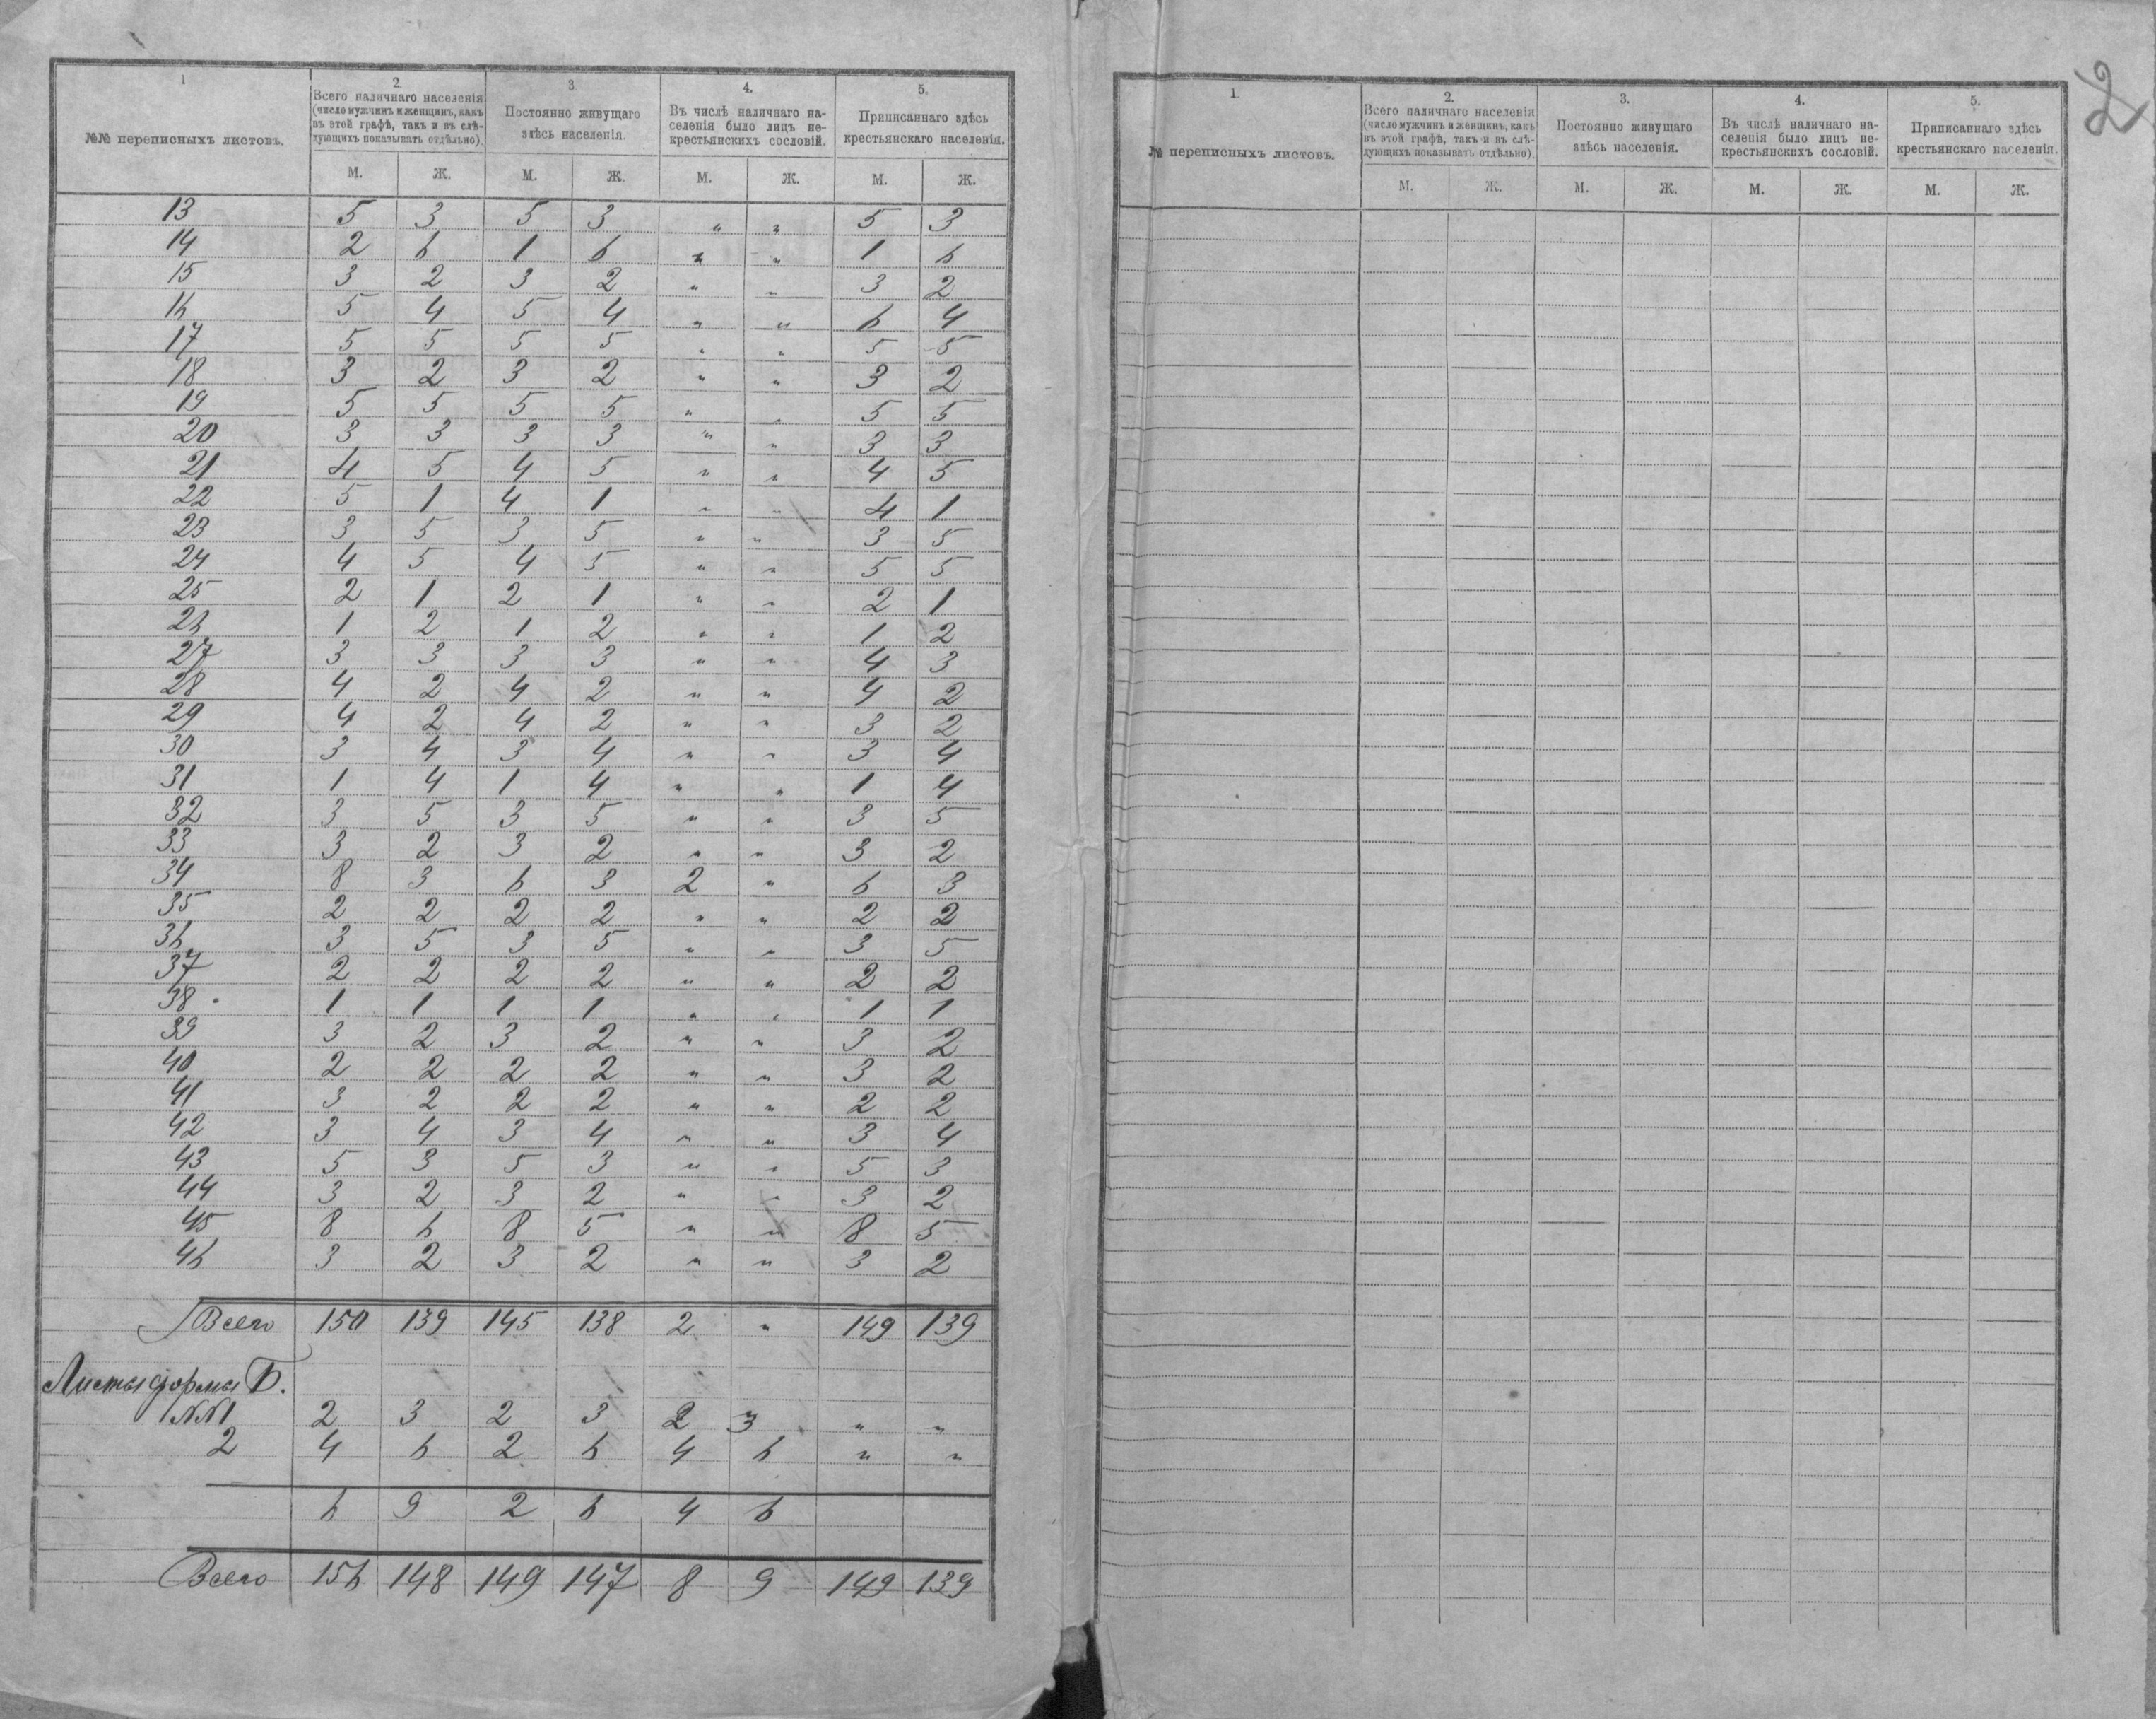 1
№№ переписныхъ листовъ.
2.
Всего наличнаго населенія
(число мужчинъ и женщинъ, какъ
въ этой графѣ, такъ и въ слѣ-
дующихъ показывать отдѣльно)
3
Постоянно живущаго
здѣсь населенія.
4.
Въ числѣ наличнаго на-
селенія было лицъ не-
крестьянскихъ сословій.
5.
Приписаннаго здѣсь
крестьянскаго населенія.
М. Ж. М. Ж. М. Ж. М. Ж.
13 5 3 5 3 " " 5 3
14 2 6 1 6 " " 1 6
15 3 2 3 2 " " 3 2
16 5 4 5 4 " " 6 4
17 5 5 5 5 " " 5 5
18 3 2 3 2 " " 3 2
19 5 5 5 5 " " 5 5
20 3 3 3 3 " " 3 3
21 4 5 4 5 " " 4 5
22 5 1 4 1 " " 4 1
23 3 5 3 5 " " 3 5
24 4 5 4 5 " " 5 5
25 2 1 2 1 " " 2 1
26 1 2 1 2 " " 1 2
27 3 3 3 3 " " 4 3
28 4 2 4 2 " " 4 2
29 4 2 4 2 " " 3 2
30 3 4 3 4 " " 3 4
31 1 4 1 4 " " 1 4
32 3 5 3 5 " " 3 5
33 3 2 3 2 " " 3 2
34 8 3 6 3 2 " 6 3
35 2 2 2 2 " " 2 2
36 3 5 3 5 " " 3 5
37 2 2 2 2 " " 2 2
38 1 1 1 1 " " 1 1
39 3 2 3 2 " " 3 2
40 2 2 2 2 " " 3 2
41 3 2 2 2 " " 2 2
42 3 4 3 4 " " 3 4
43 5 3 5 3 " " 5 3
44 3 2 3 2 " " 3 2
45 8 6 8 5 " " 8 5
46 3 2 3 2 " " 3 2
Всего 150 139 145 138 2 " 149 139
Листы формы Б.
№№1 2 3 2 3 2 3 " "
2 4 6 2 6 4 6 " "
6 9 2 6 4 6
Всего 156 148 149 147 8 9 149 139
2
1.
№ переписныхъ листовъ.
2.
Всего наличнаго населенія
(число мужчинъ и женщинъ, какъ
въ этой графѣ, такъ и въ слѣ-
дующихъ показывать отдѣльно).
3.
Постоянно живущаго
здѣсь населенія.
4.
Въ числѣ наличнаго на-
селенія было лицъ не-
крестьянскихъ сословій.
5.
Приписаннаго здѣсь
крестьянскаго населенія.
М. Ж. М. Ж. М. Ж. М. Ж.